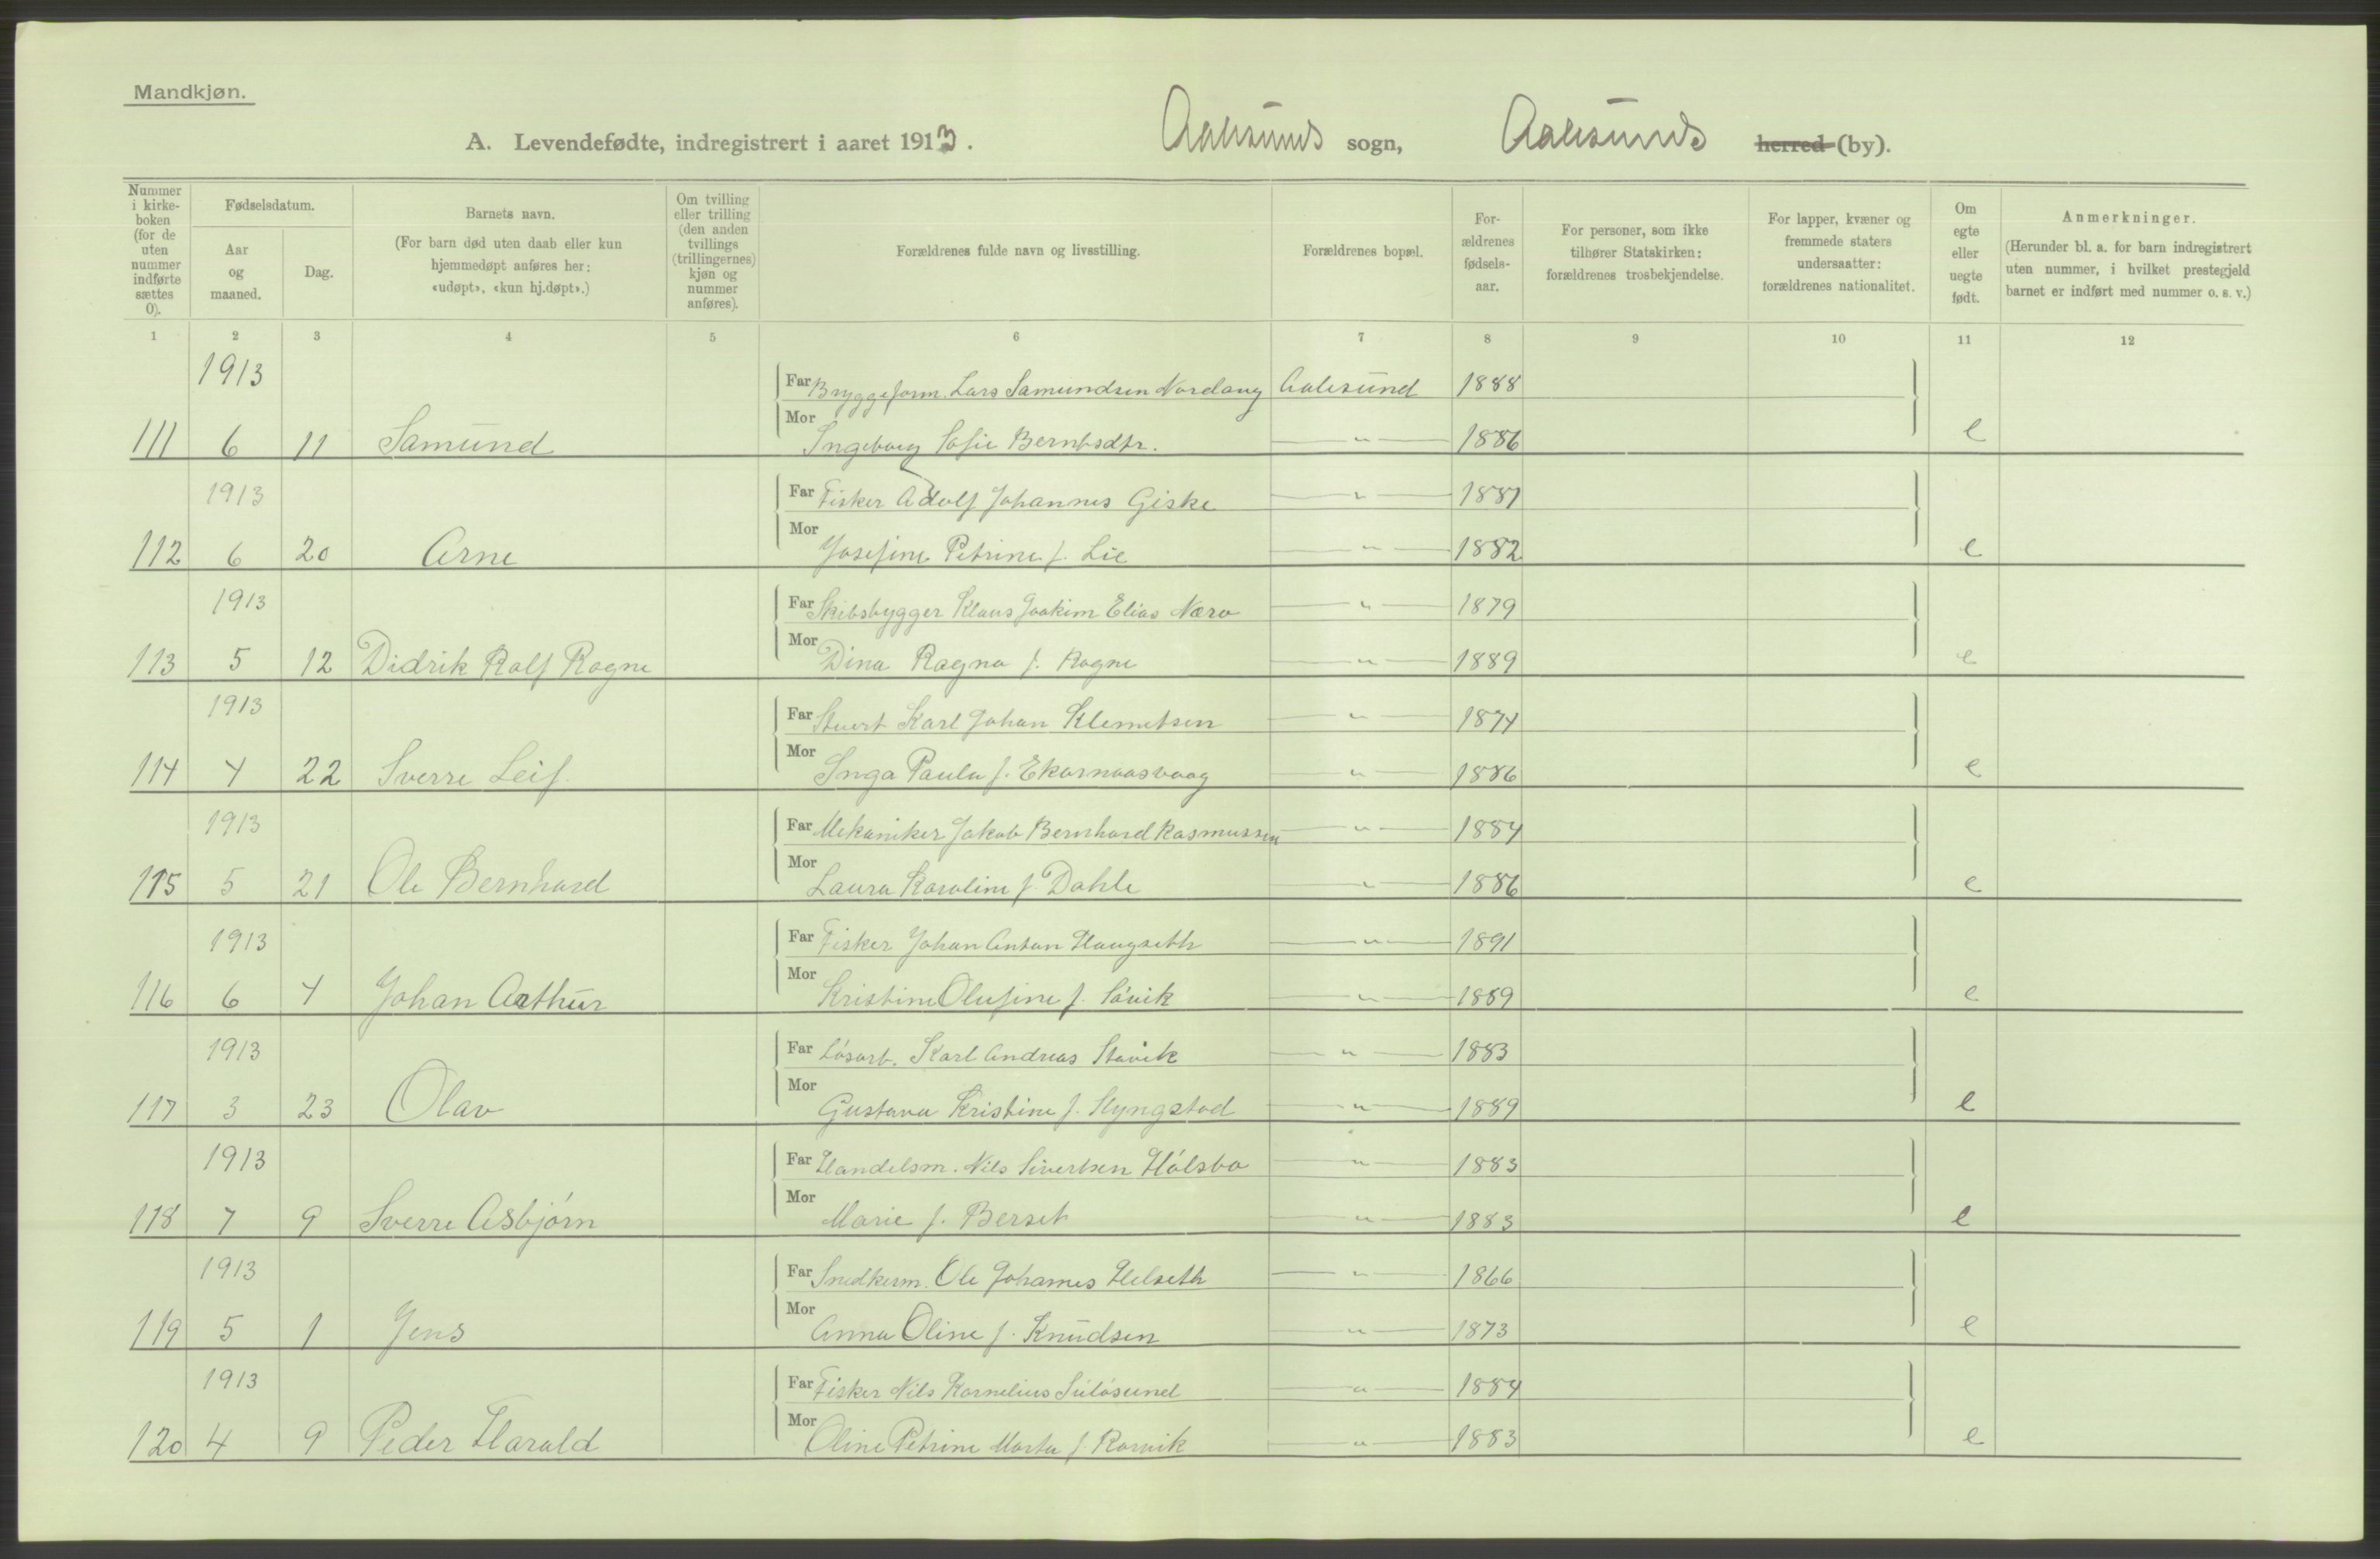 Mandkjøn.
A. Levendefødte, indregistrert i aaret 1913. Aalesunds sogn, Aalesunds herred (by).
Nummer i kirke-boken (for de uten nummer indførte sættes 0).
Fødselsdatum.
Aar og maaned.
Dag.
Barnets navn.
(For barn død uten daab eller kun hjemmedøpt anføres her: «udøpt», «kun hj.døpt».)
Om tvilling eller trilling (den anden tvillings (trillingernes) kjøn og nummer anføres).
Forældrenes fulde navn og livsstilling.
Forældrenes bopæl.
For-ældrenes fødsels-aar.
For personer, som ikke tilhører Statskirken: forældrenes trosbekjendelse.
For lapper, kvæner og fremmede staters undersaatter: forældrenes nationalitet.
Om egte eller uegte født.
Anmerkninger.
(Herunder bl. a. for barn indregistrert uten nummer, i hvilket prestegjeld barnet er indført med nummer o. s. v.)
1 2 3 4 5 6 7 8 9 10 11 12
1913 Far Bryggeform. Lars Samundsen Nordang Aalesund 1888
111 6 11 Samund Mor Ingeborg Sofie Berntsdtr. — " — 1886 e
1913 Far Fisker Adolf Johannes Giske — " — 1881
112 6 20 Arne Mor Josefine Petrine f. Lie — " — 1882 e
1913 Far Skibsbygger Klaus Joakim Elias Nærø — " — 1879
113 5 12 Didrik Ralf Rogne Mor Dina Ragna f. Rogne — " — 1889 e
1913 Far Stuert Karl Johan Klemetsen — " — 1874
114 4 22 Sverre Leif Mor Inga Paula f. Ekornaasvaag — " — 1886 e
1913 Far Mekaniker Jakob Bernhard Rasmussen — " — 1884
115 5 21 Ole Bernhard Mor Laura Karoline f. Dahle — " — 1886 e
1913 Far Fisker Johan Anton Haugseth — " — 1891
116 6 4 Johan Arthur Mor Kristine Olufine f. Søvik — " — 1889 e
1913 Far Løsarb. Karl Andreas Stavik — " — 1883
117 3 23 Olav Mor Gustava Kristine f. Slyngstad — " — 1889 e
1913 Far Handelsm. Nils Sivertsen Hølsbø — " — 1883
118 7 9 Sverre Asbjørn Mor Marie f. Berset — " — 1883 e
1913 Far Snedkerm. Ole Johannes Helseth — " — 1866
119 5 1 Jens Mor Anna Oline f. Knudsen — " — 1873 e
1913 Far Fisker Nils Kornelius Suløsund — " — 1884
120 4 9 Peder Harald Mor Oline Petrine Marta f. Ramvik — " — 1883 e